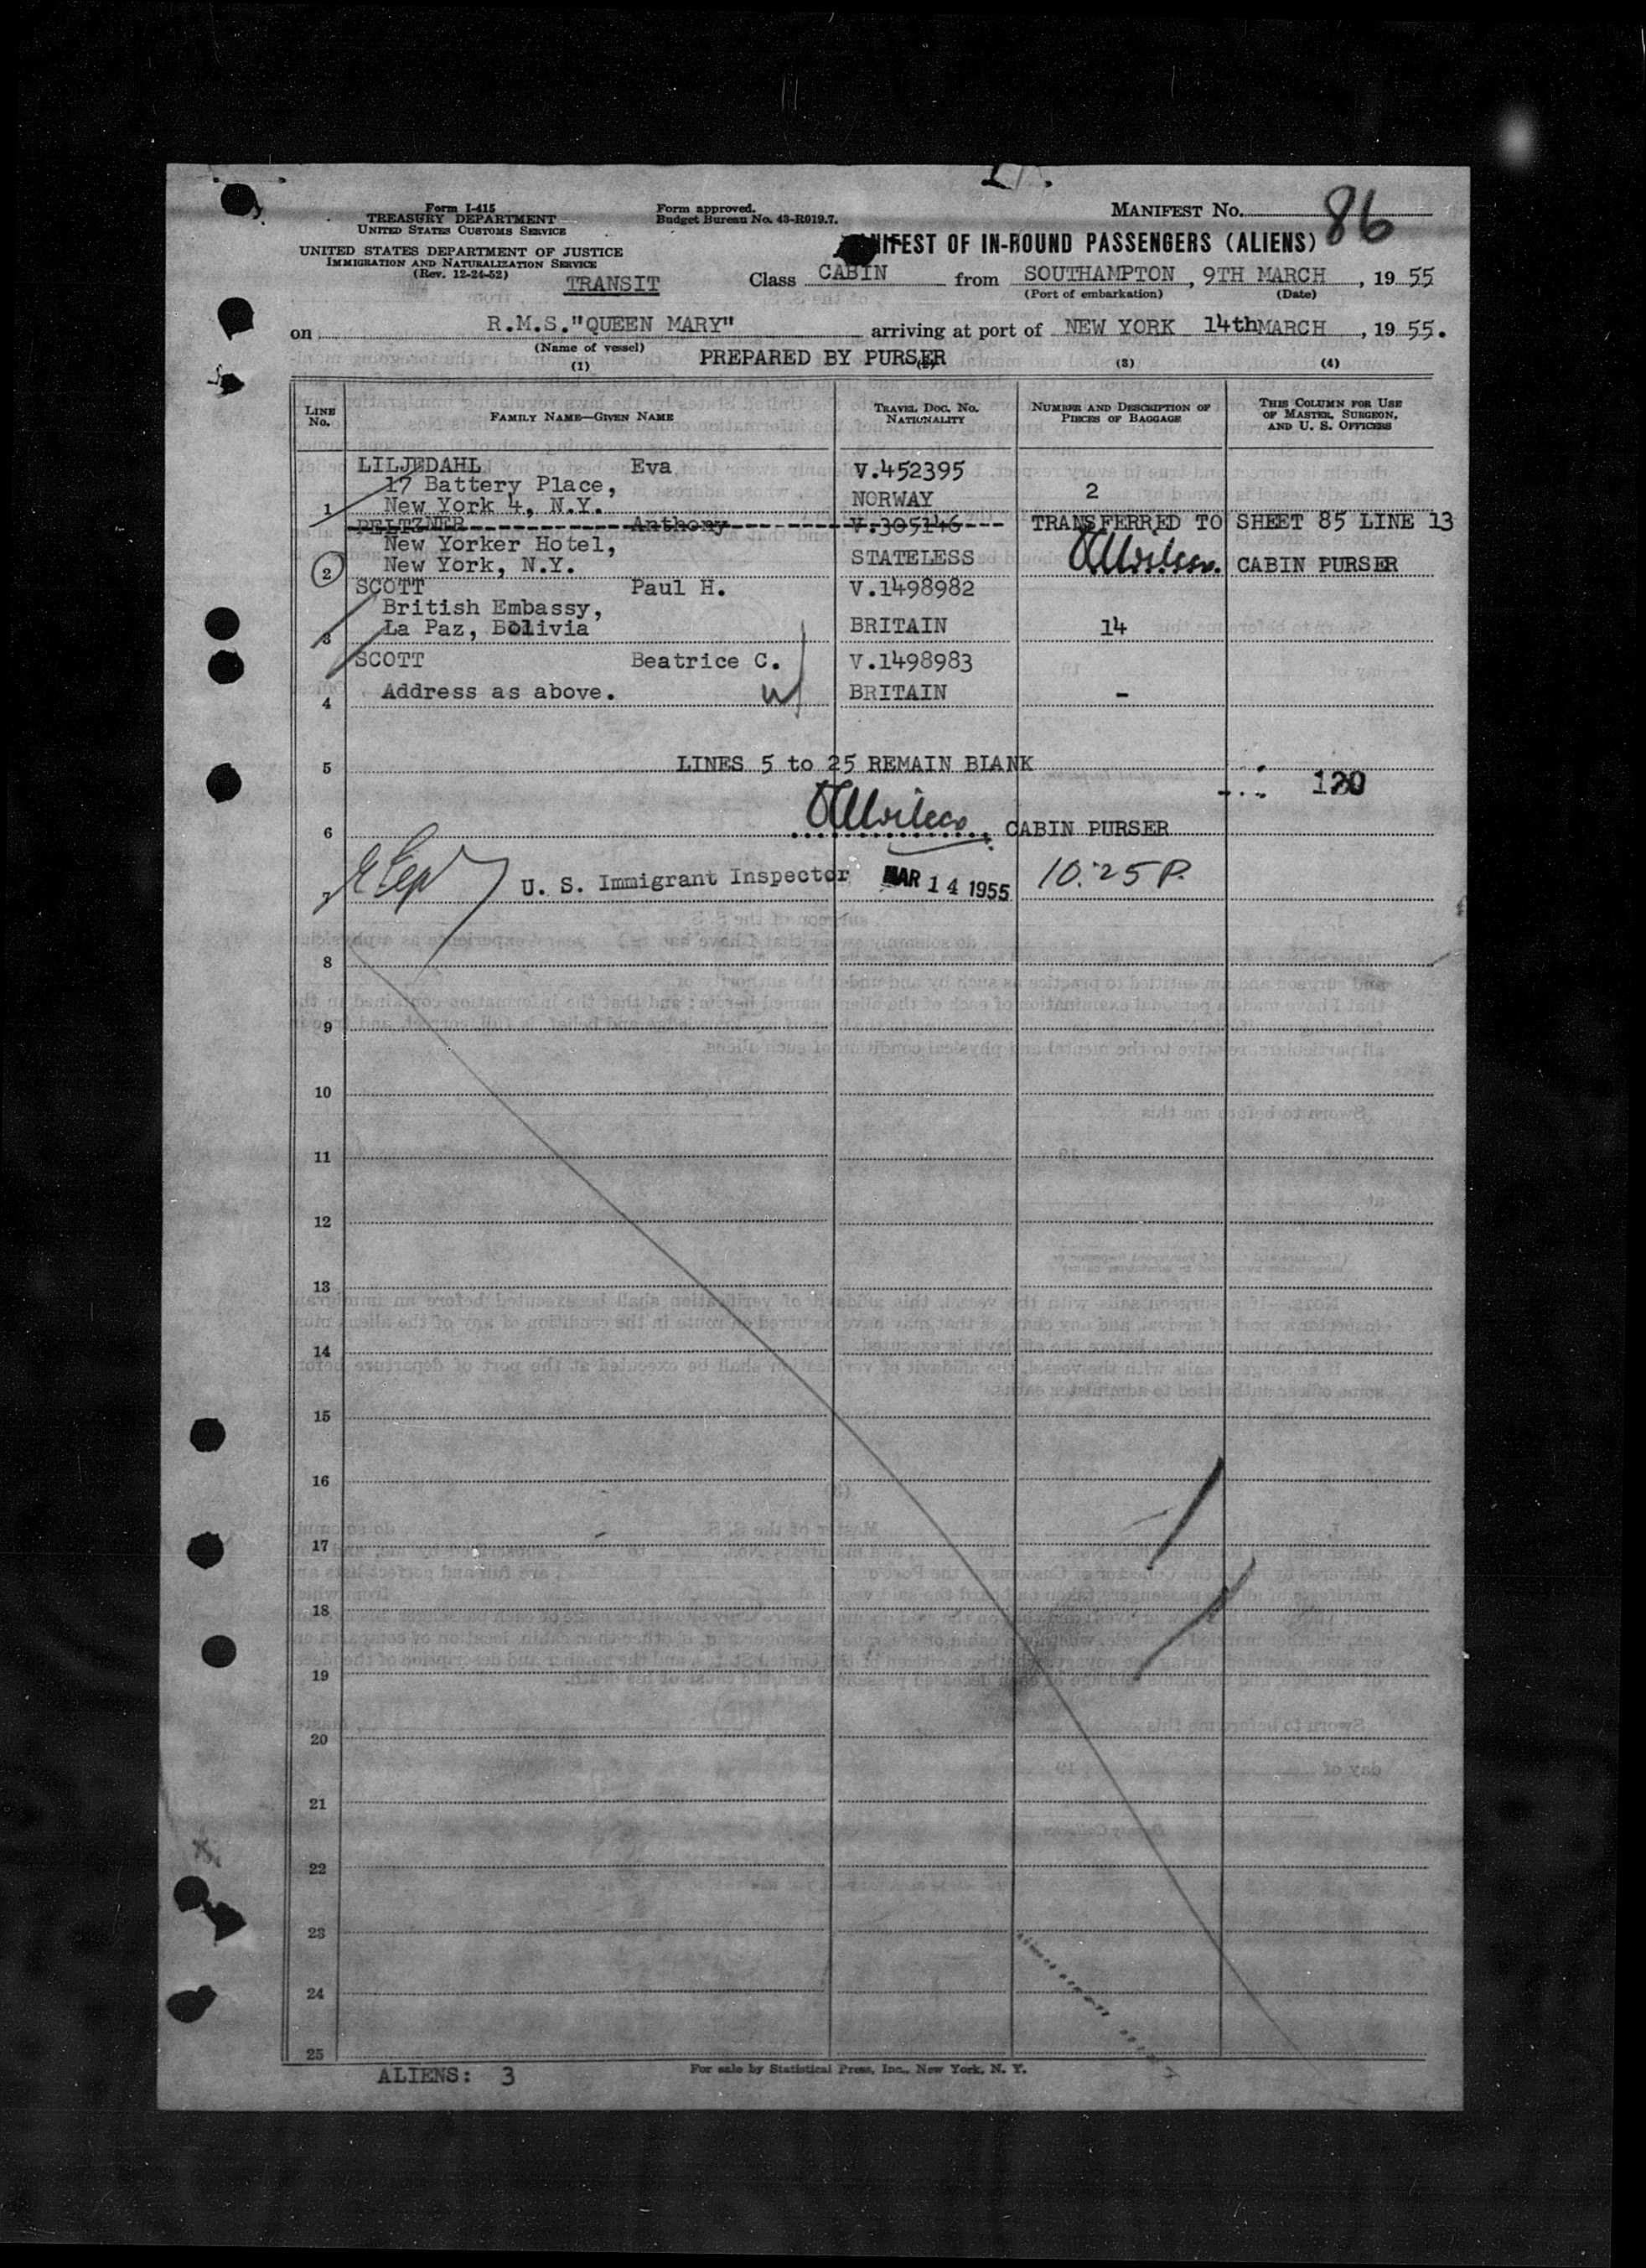 Form I-415
TREASURY DEPARTMENT
UNITED STATES CUSTOMS SERVICE
UNITED STATES DEPARTMENT OF JUSTICE
IMMIGRATION AND NATURALIZATION SERVICE
(Rev. 12-24-52)
TRANSIT
Form approved.
Budget Bureau No. 43-R019.7.
MANIFEST NO. 86
MANIFEST OF IN-BOUND PASSENGERS (ALIENS)
Class CABIN from SOUTHAMPTON, 9TH MARCH, 19 55
(Port of embarkation) (Date)
on R.M.S."QUEEN MARY" arriving at port of NEW YORK 14th MARCH, 19 55.
(Name of vessel)
PREPARED BY PURSER
(1) (2) (3) (4)
LINE NO. FAMILY NAME—GIVEN NAME TRAVEL DOC. NO. NATIONALITY NUMBER AND DESCRIPTION OF PIECES OF BAGGAGE THIS COLUMN FOR USE OF MASTER, SURGEON, AND U. S. OFFICERS
LILJEDAHL Eva V.452395
17 Battery Place,
1 New York 4, N.Y. NORWAY 2
PELTZNER Anthony V.305146 TRANSFERRED TO SHEET 85 LINE 13
New Yorker Hotel,
2 New York, N.Y. STATELESS CABIN PURSER
SCOTT Paul H. V.1498982
British Embassy,
3 La Paz, Bolivia BRITAIN 14
SCOTT Beatrice C. V.1498983
4 Address as above. BRITAIN -
5 LINES 5 to 25 REMAIN BLANK
120
6 CABIN PURSER
7 U. S. Immigrant Inspector MAR 14 1955 10:25 P.
8
9
10
11
12
13
14
15
16
17
18
19
20
21
22
23
24
25
ALIENS: 3
For sale by Statistical Press, Inc., New York, N. Y.